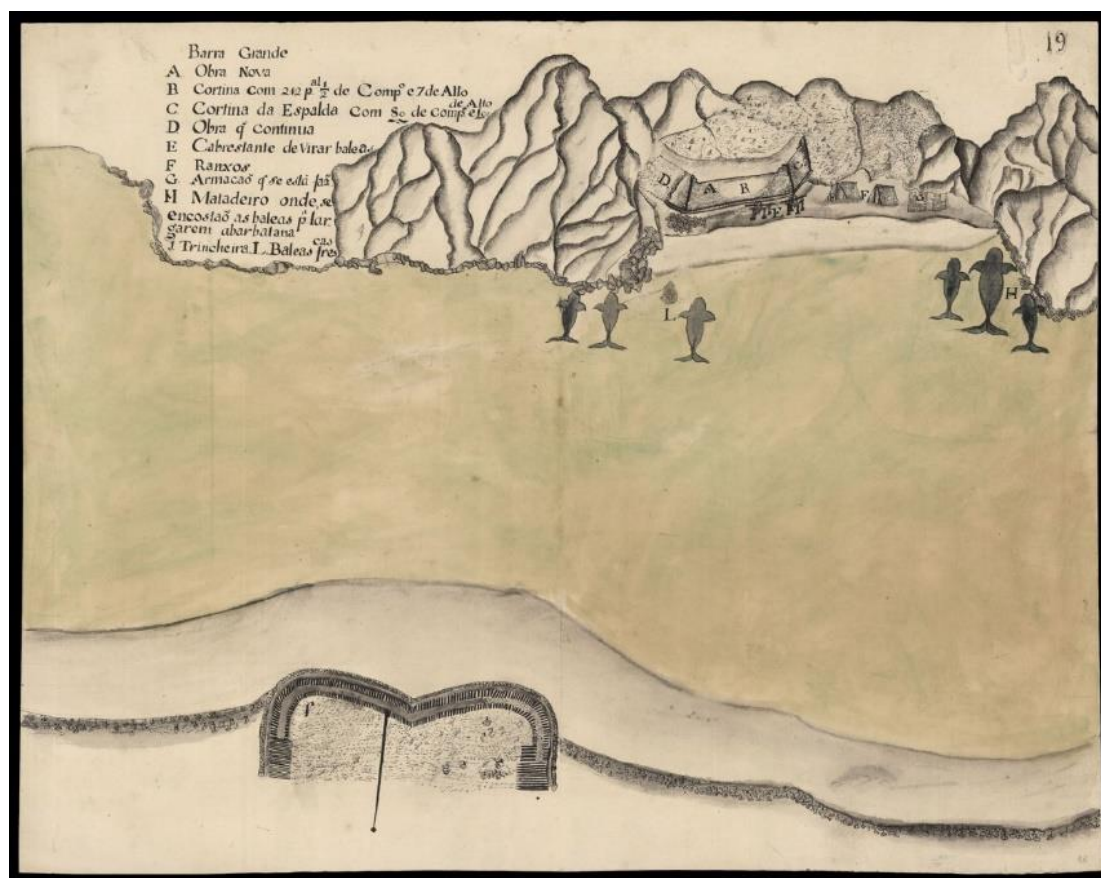 19
Barra Grande
A Obra Nova
B Cortina com 212 p.al ½ de Comp.º e 7 de Alto
C Cortina da Espalda Com 80 de Comp.º e de Alto
D Obra q̃ Continua
E Cabrestante de virar baleas
F Ranxos
G Armacaõ q̃ se está
H Matadeiro onde, se
encostaõ as baleas p.ª lar
garem abarbatana
J. Trincheira. L. Baleas frescas
D A B C
E F G
H
L
J